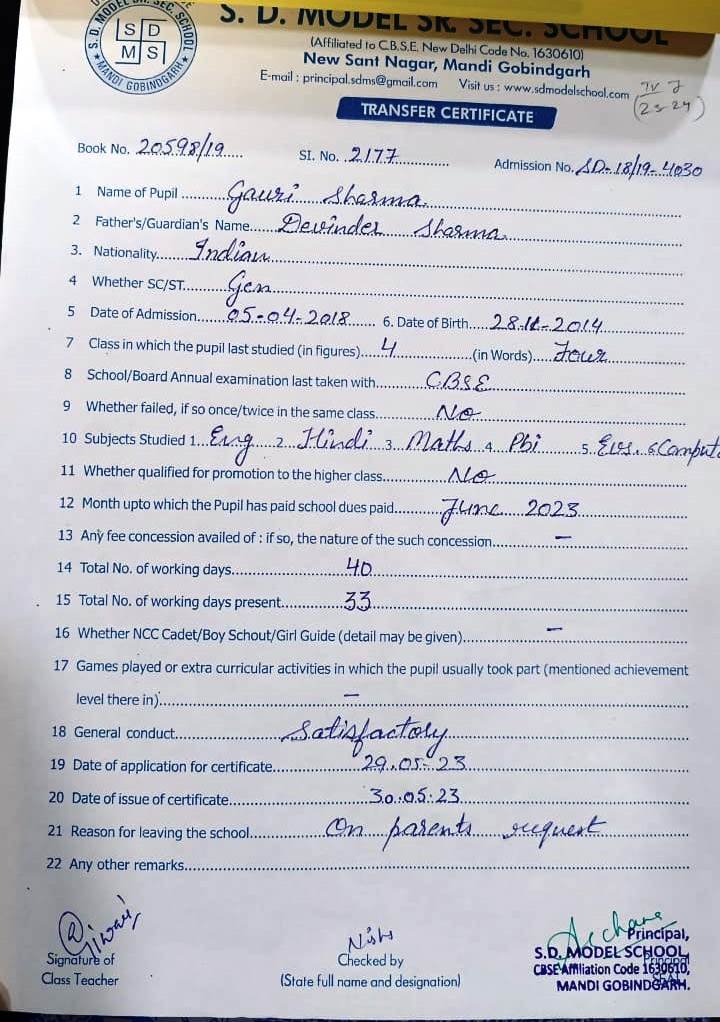 S. D. MODEL SR. SEC. SCHOOL
S. D. MODEL SR. SEC. SCHOOL
S D
M S
★ MANDI GOBINDGARH ★
(Affiliated to C.B.S.E. New Delhi Code No. 1630610)
New Sant Nagar, Mandi Gobindgarh
E-mail : principal.sdms@gmail.com Visit us : www.sdmodelschool.com
IV J
(23-24)
TRANSFER CERTIFICATE
Book No. 20598/19 SI. No. 2177 Admission No. SD-18/19-4030
1 Name of Pupil Gauri Sharma
2 Father's/Guardian's Name Devinder Sharma
3. Nationality Indian
4 Whether SC/ST Gen
5 Date of Admission 05-04-2018 6. Date of Birth 28-11-2014
7 Class in which the pupil last studied (in figures) 4 (in Words) Four
8 School/Board Annual examination last taken with CBSE
9 Whether failed, if so once/twice in the same class No
10 Subjects Studied 1 Eng 2 Hindi 3 Maths 4 Pbi 5 EVS. 6 Comput
11 Whether qualified for promotion to the higher class No
12 Month upto which the Pupil has paid school dues paid June 2023
13 Any fee concession availed of : if so, the nature of the such concession —
14 Total No. of working days 40
15 Total No. of working days present 33
16 Whether NCC Cadet/Boy Schout/Girl Guide (detail may be given) —
17 Games played or extra curricular activities in which the pupil usually took part (mentioned achievement
level there in) —
18 General conduct Satisfactory
19 Date of application for certificate 29.05.23
20 Date of issue of certificate 30.05.23
21 Reason for leaving the school On parents request
22 Any other remarks
Nisha
Signature of Checked by Principal,
Class Teacher (State full name and designation) S.D. MODEL SCHOOL,
CBSE Affiliation Code 1630610,
MANDI GOBINDGARH.